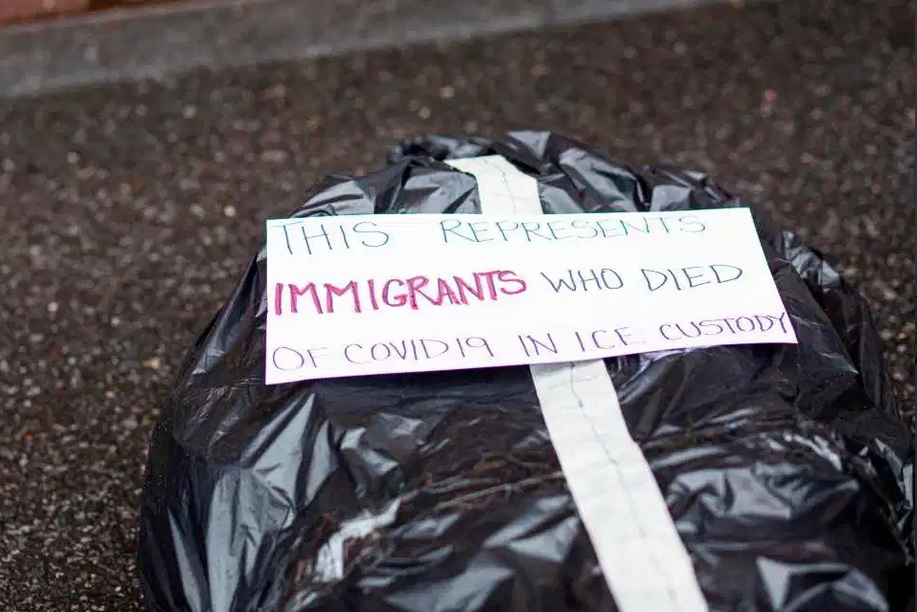 THIS REPRESENTS
IMMIGRANTS WHO DIED
OF COVID19 IN ICE CUSTODY